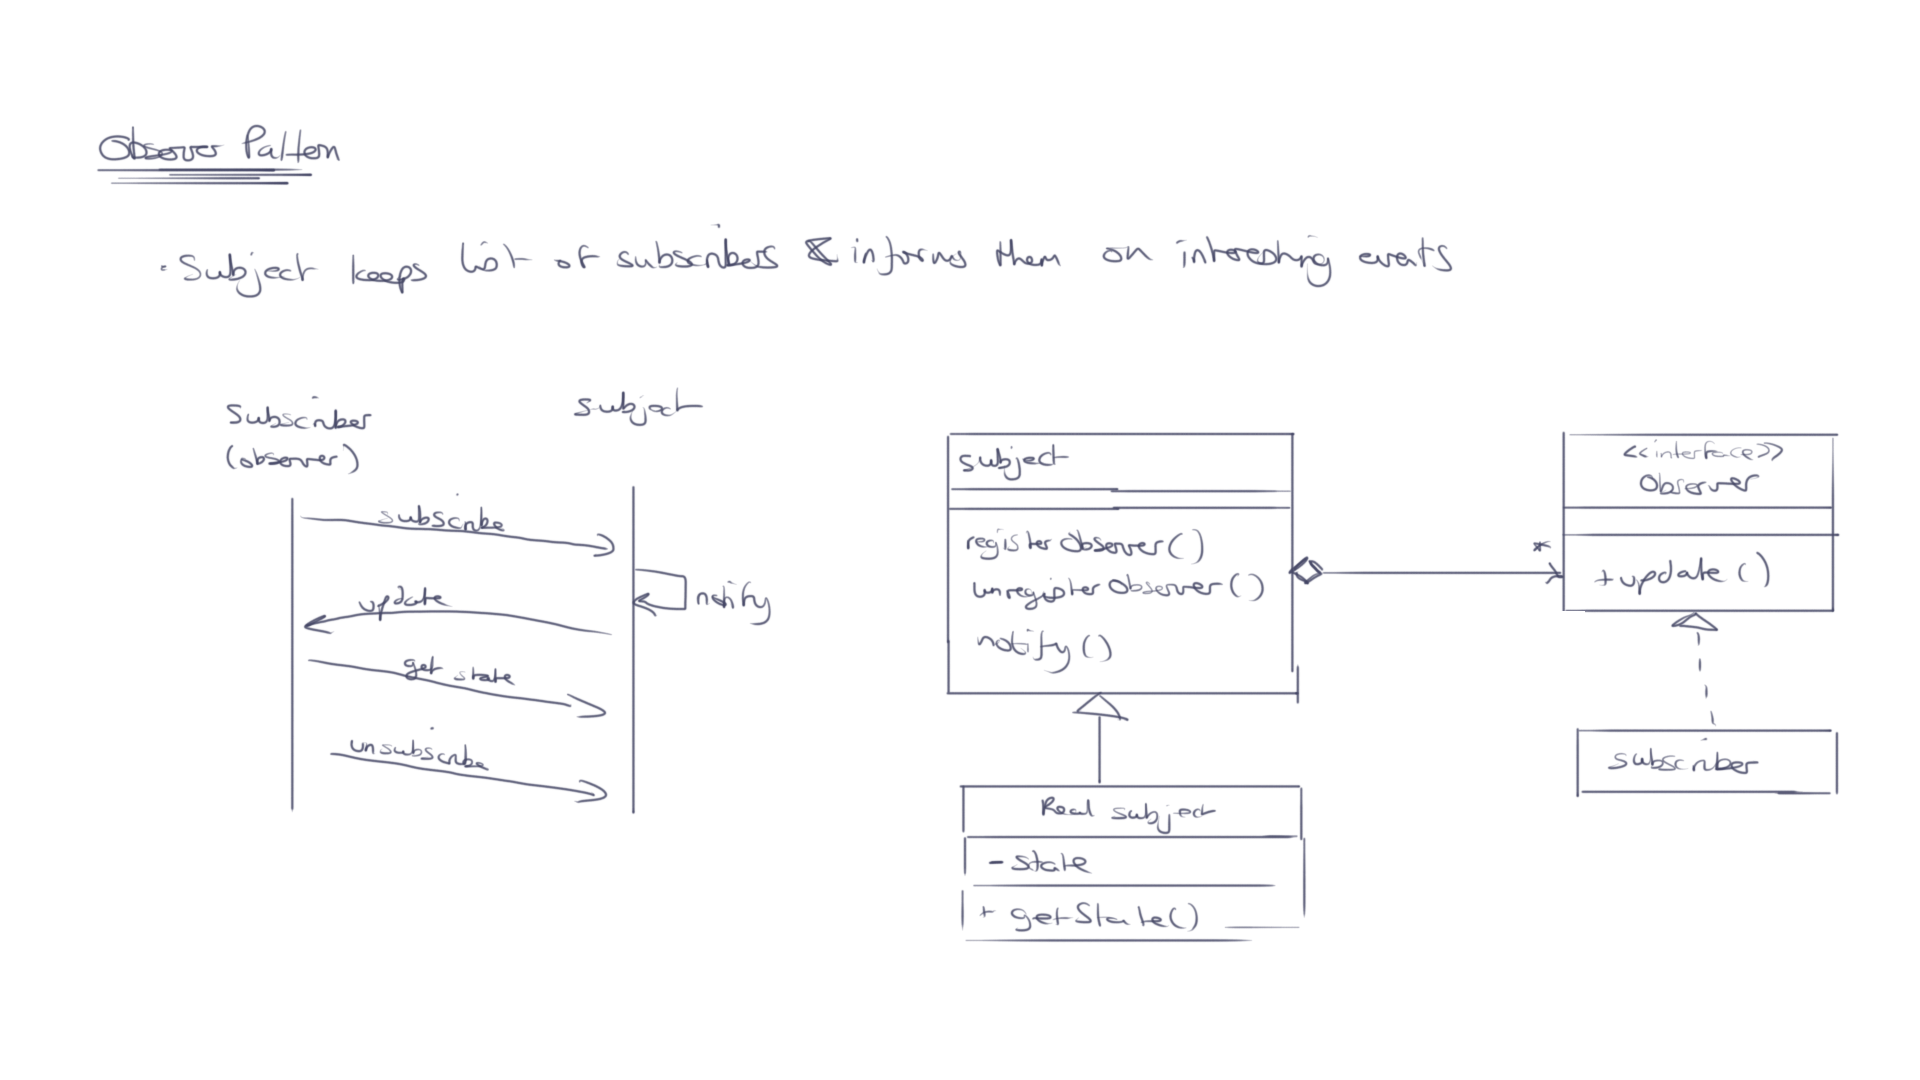 Observer Pattern
· Subject keeps list of subscribers & informs them on interesting events
Subscriber
(observer)
subject
subscribe
notify
update
get state
unsubscribe
subject
registerObserver()
unregisterObserver()
notify()
Real subject
- state
+ getState()
*
<<interface>>
Observer
+update()
subscriber